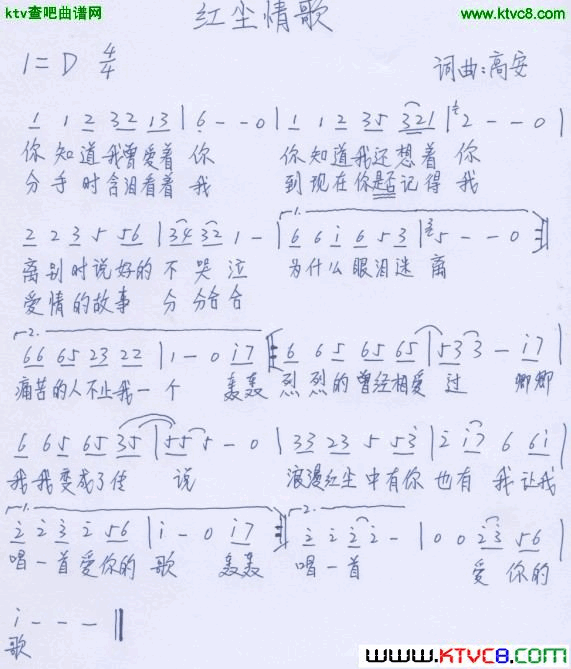 ktv查吧曲谱网
www.ktvc8.com
红尘情歌
1=D 4/4
词曲:高安
1 1 2 32 13 | 6 - - 0 | 1 1 2 35 321 | 2 - - 0 |
你知道我曾爱着 你 你知道我还想着 你
分手时含泪看着 我 到现在你是否记得 我
2 2 3 5 56 | 34 32 1 - | 6 6 i 6 5 3 | 5 - - 0 :|
离别时说好的 不 哭 泣 为什么眼泪迷 离
爱情的故事 分 分合 合
66 65 23 22 | 1 - 0 i7 |: 6 65 65 65 | 53 3 - i7 |
痛苦的人不止我一个 轰轰 烈烈的曾经相爱 过 卿卿
6 65 65 35 | 55 5 - 0 | 33 23 5 53 | 2 i7 6 6i |
我我变成了传 说 浪漫红尘中有你也有 我让我
2 2 3 2 56 | i - 0 i7 :| 2 2 2 2 - | 0 0 23 56 |
唱一首爱你的 歌 轰轰 唱一首 爱 你的
i - - - ||
歌
www.KTVC8.com